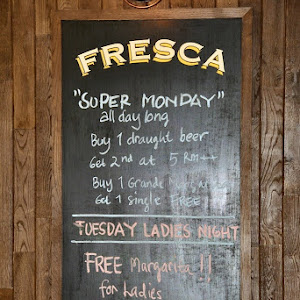 FRESCA
"SUPER MONDAY"
all day long
Buy 1 draught beer
Get 2nd at 5 RM++
Buy 1 Grande Margarita
Get 1 single FREE
TUESDAY LADIES NIGHT
FREE Margarita !!
for Ladies